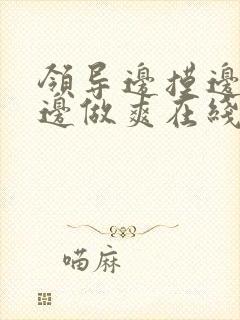 領导邊摸邊
邊做爽在綫
喵麻